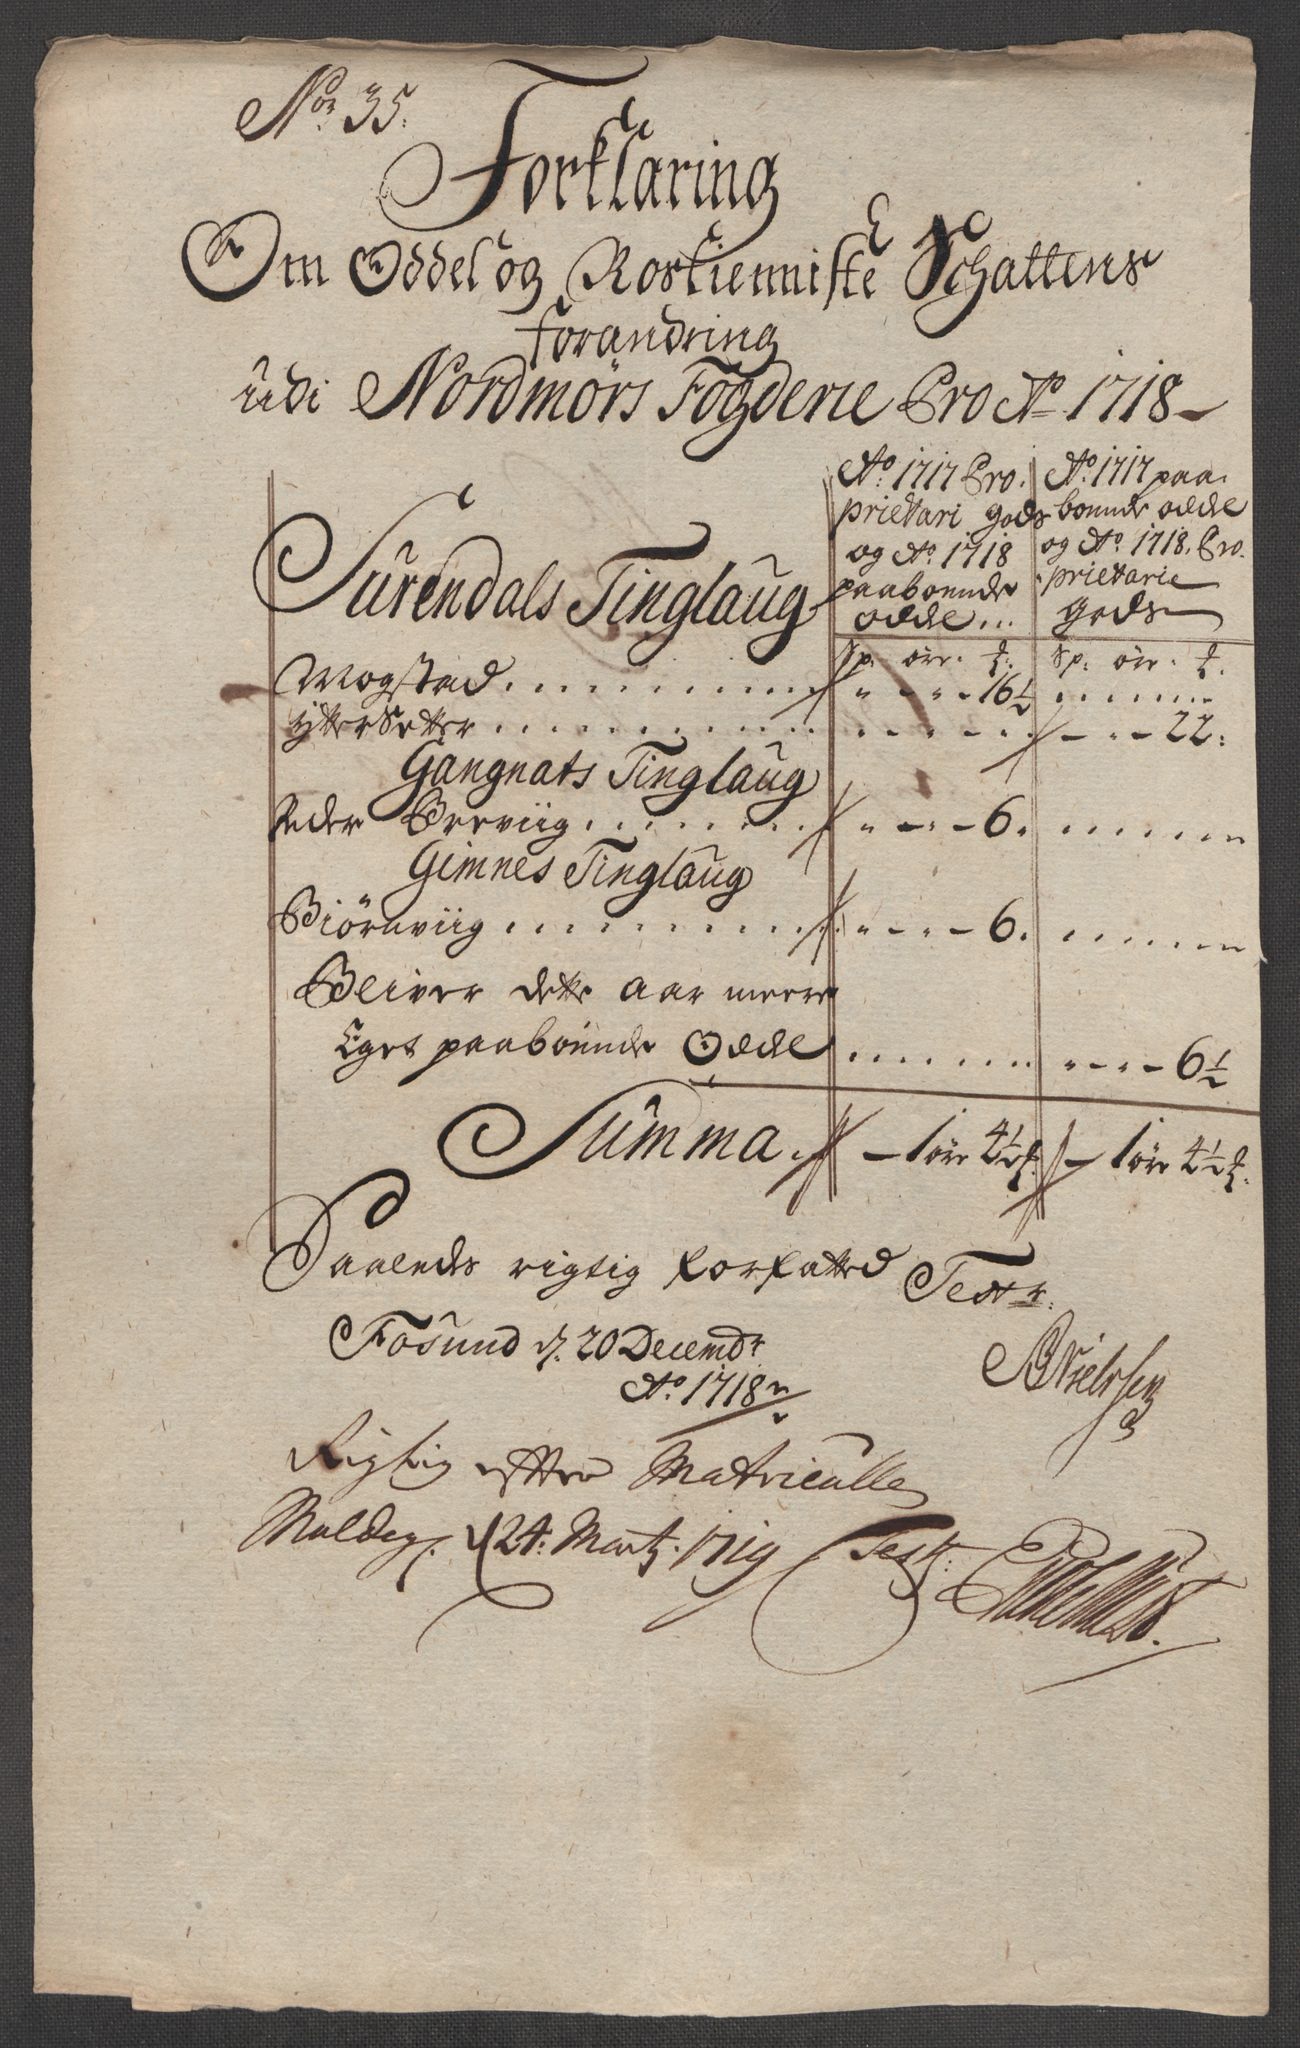 No. 35.
Forklaring
Om Oddel og Rostienniste Schattens
forandring
udi Nordmørs Fogderie Pro Ao 1718
Ao. 1717 Pro-
prietari gods
og Ao. 1718
paaboende
oddel...
Ao. 1717 paa-
boende oddel
og Ao. 1718. Pro-
prietarie
gods
Surendals Tinglaug
Sp. øre. Sp: øre.
Mogstad 16½
ytter Setter 22:
Gangnats Tinglaug
Neder Breviig 6.
Gimnes Tinglaug
Biørnviig 6.
Bliver dette aar meere
Eget paaboende Oddel 6½
Summa. 1 øre 4½ 1 øre 4½
Saaledes rigtig forfatted Test.
Fosund d. 20 Decembr
Ao. 1718
Nielssen
Rigtig efter Matriculle
Molde d 24. Marty. 1719 Test: